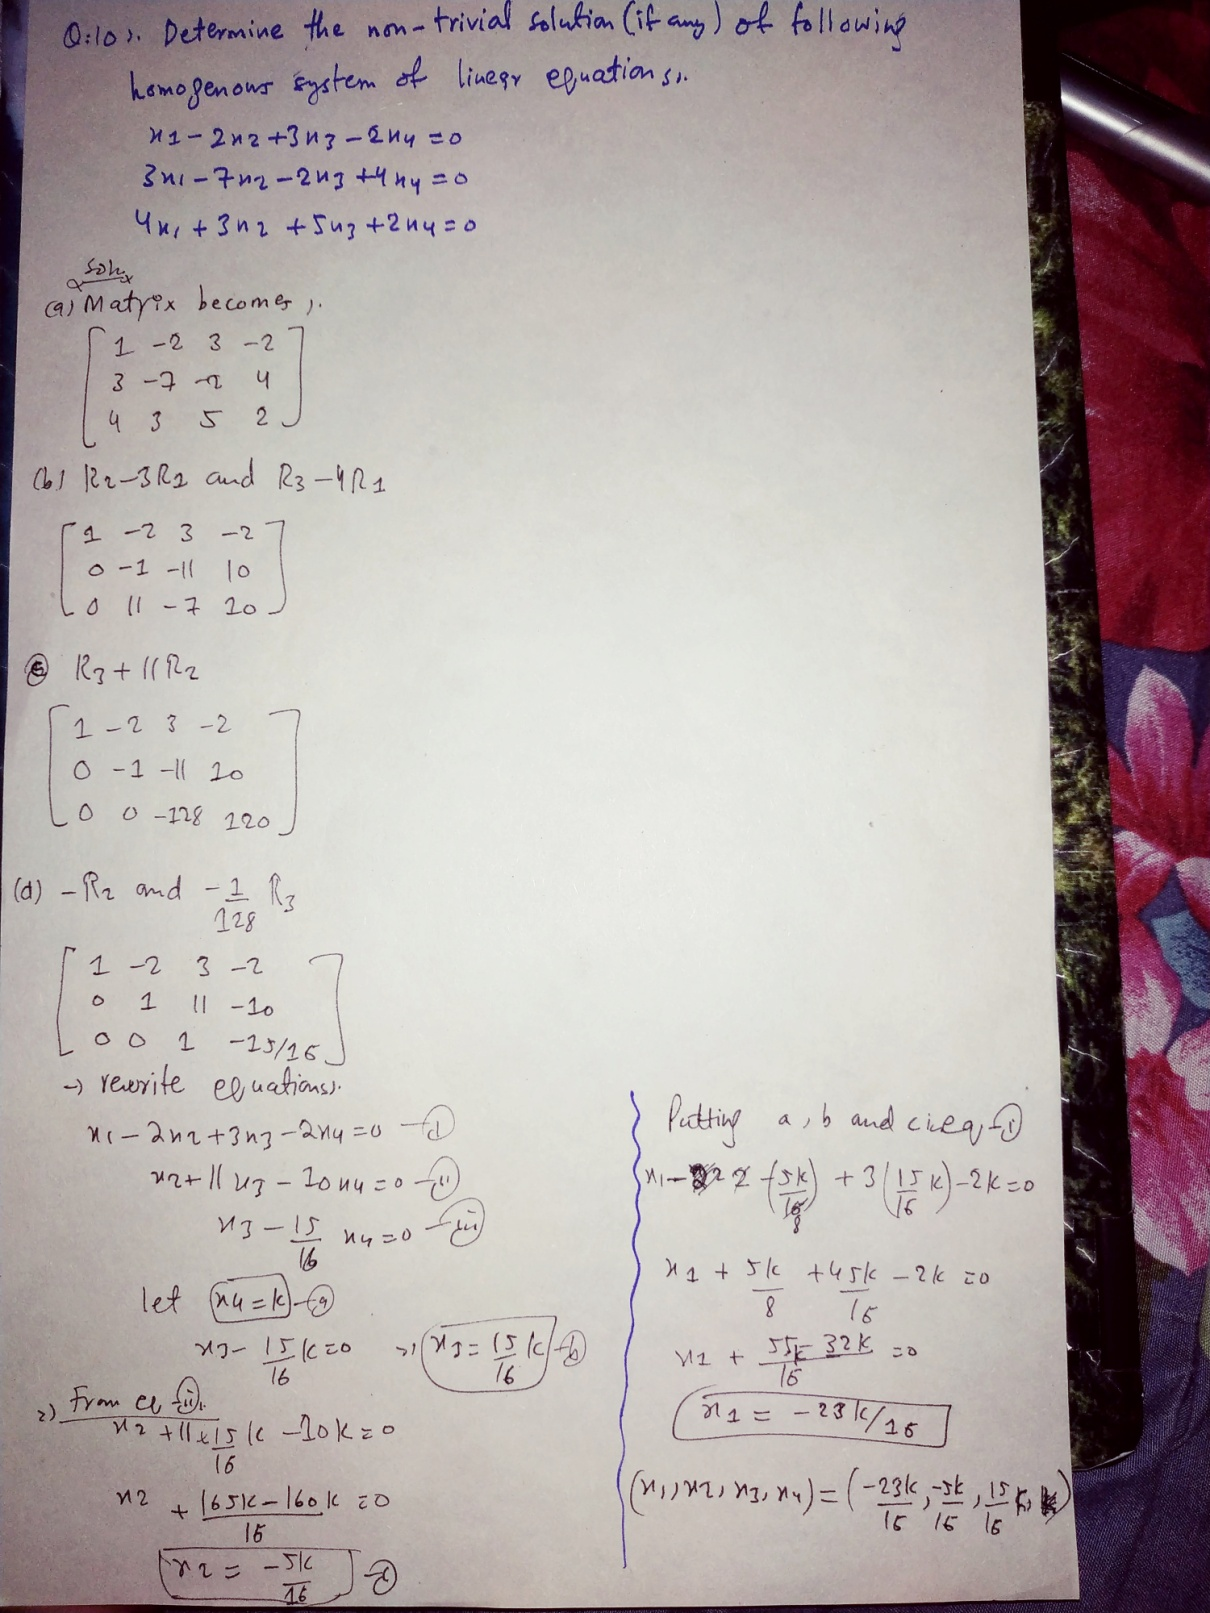 Q:10). Determine the non-trivial solution (if any) of following
homogenous system of linear equations).
x1 - 2x2 + 3x3 - 2x4 = 0
3x1 - 7x2 - 2x3 + 4x4 = 0
4x1 + 3x2 + 5x3 + 2x4 = 0
Soln
(a) Matrix becomes ).
1 -2 3 -2
3 -7 -2 4
4 3 5 2
(b) R2-3R1 and R3-4R1
1 -2 3 -2
0 -1 -11 10
0 11 -7 10
(c) R3 + 11R2
1 -2 3 -2
0 -1 -11 10
0 0 -128 120
(d) -R2 and -1/128 R3
1 -2 3 -2
0 1 11 -10
0 0 1 -15/16
→ rewrite equations).
x1 - 2x2 + 3x3 - 2x4 = 0 - (i)
x2 + 11x3 - 10x4 = 0 - (ii)
x3 - 15/16 x4 = 0 - (iii)
let x4 = k - (a)
x3 - 15/16 k = 0 ⇒ x3 = 15/16 k - (b)
⇒) From eq (ii).
x2 + 11 x 15/16 k - 10k = 0
x2 + 165k - 160k/16 = 0
x2 = -5k/16 - (c)
Putting a, b and c in eq - (i)
x1 - 2 (-5k/8) + 3(15/16 k) - 2k = 0
x1 + 5k/8 + 45k/16 - 2k = 0
x1 + 55k - 32k/16 = 0
x1 = -23k/16
(x1, x2, x3, x4) = (-23k/16, -5k/16, 15/16 k, k)